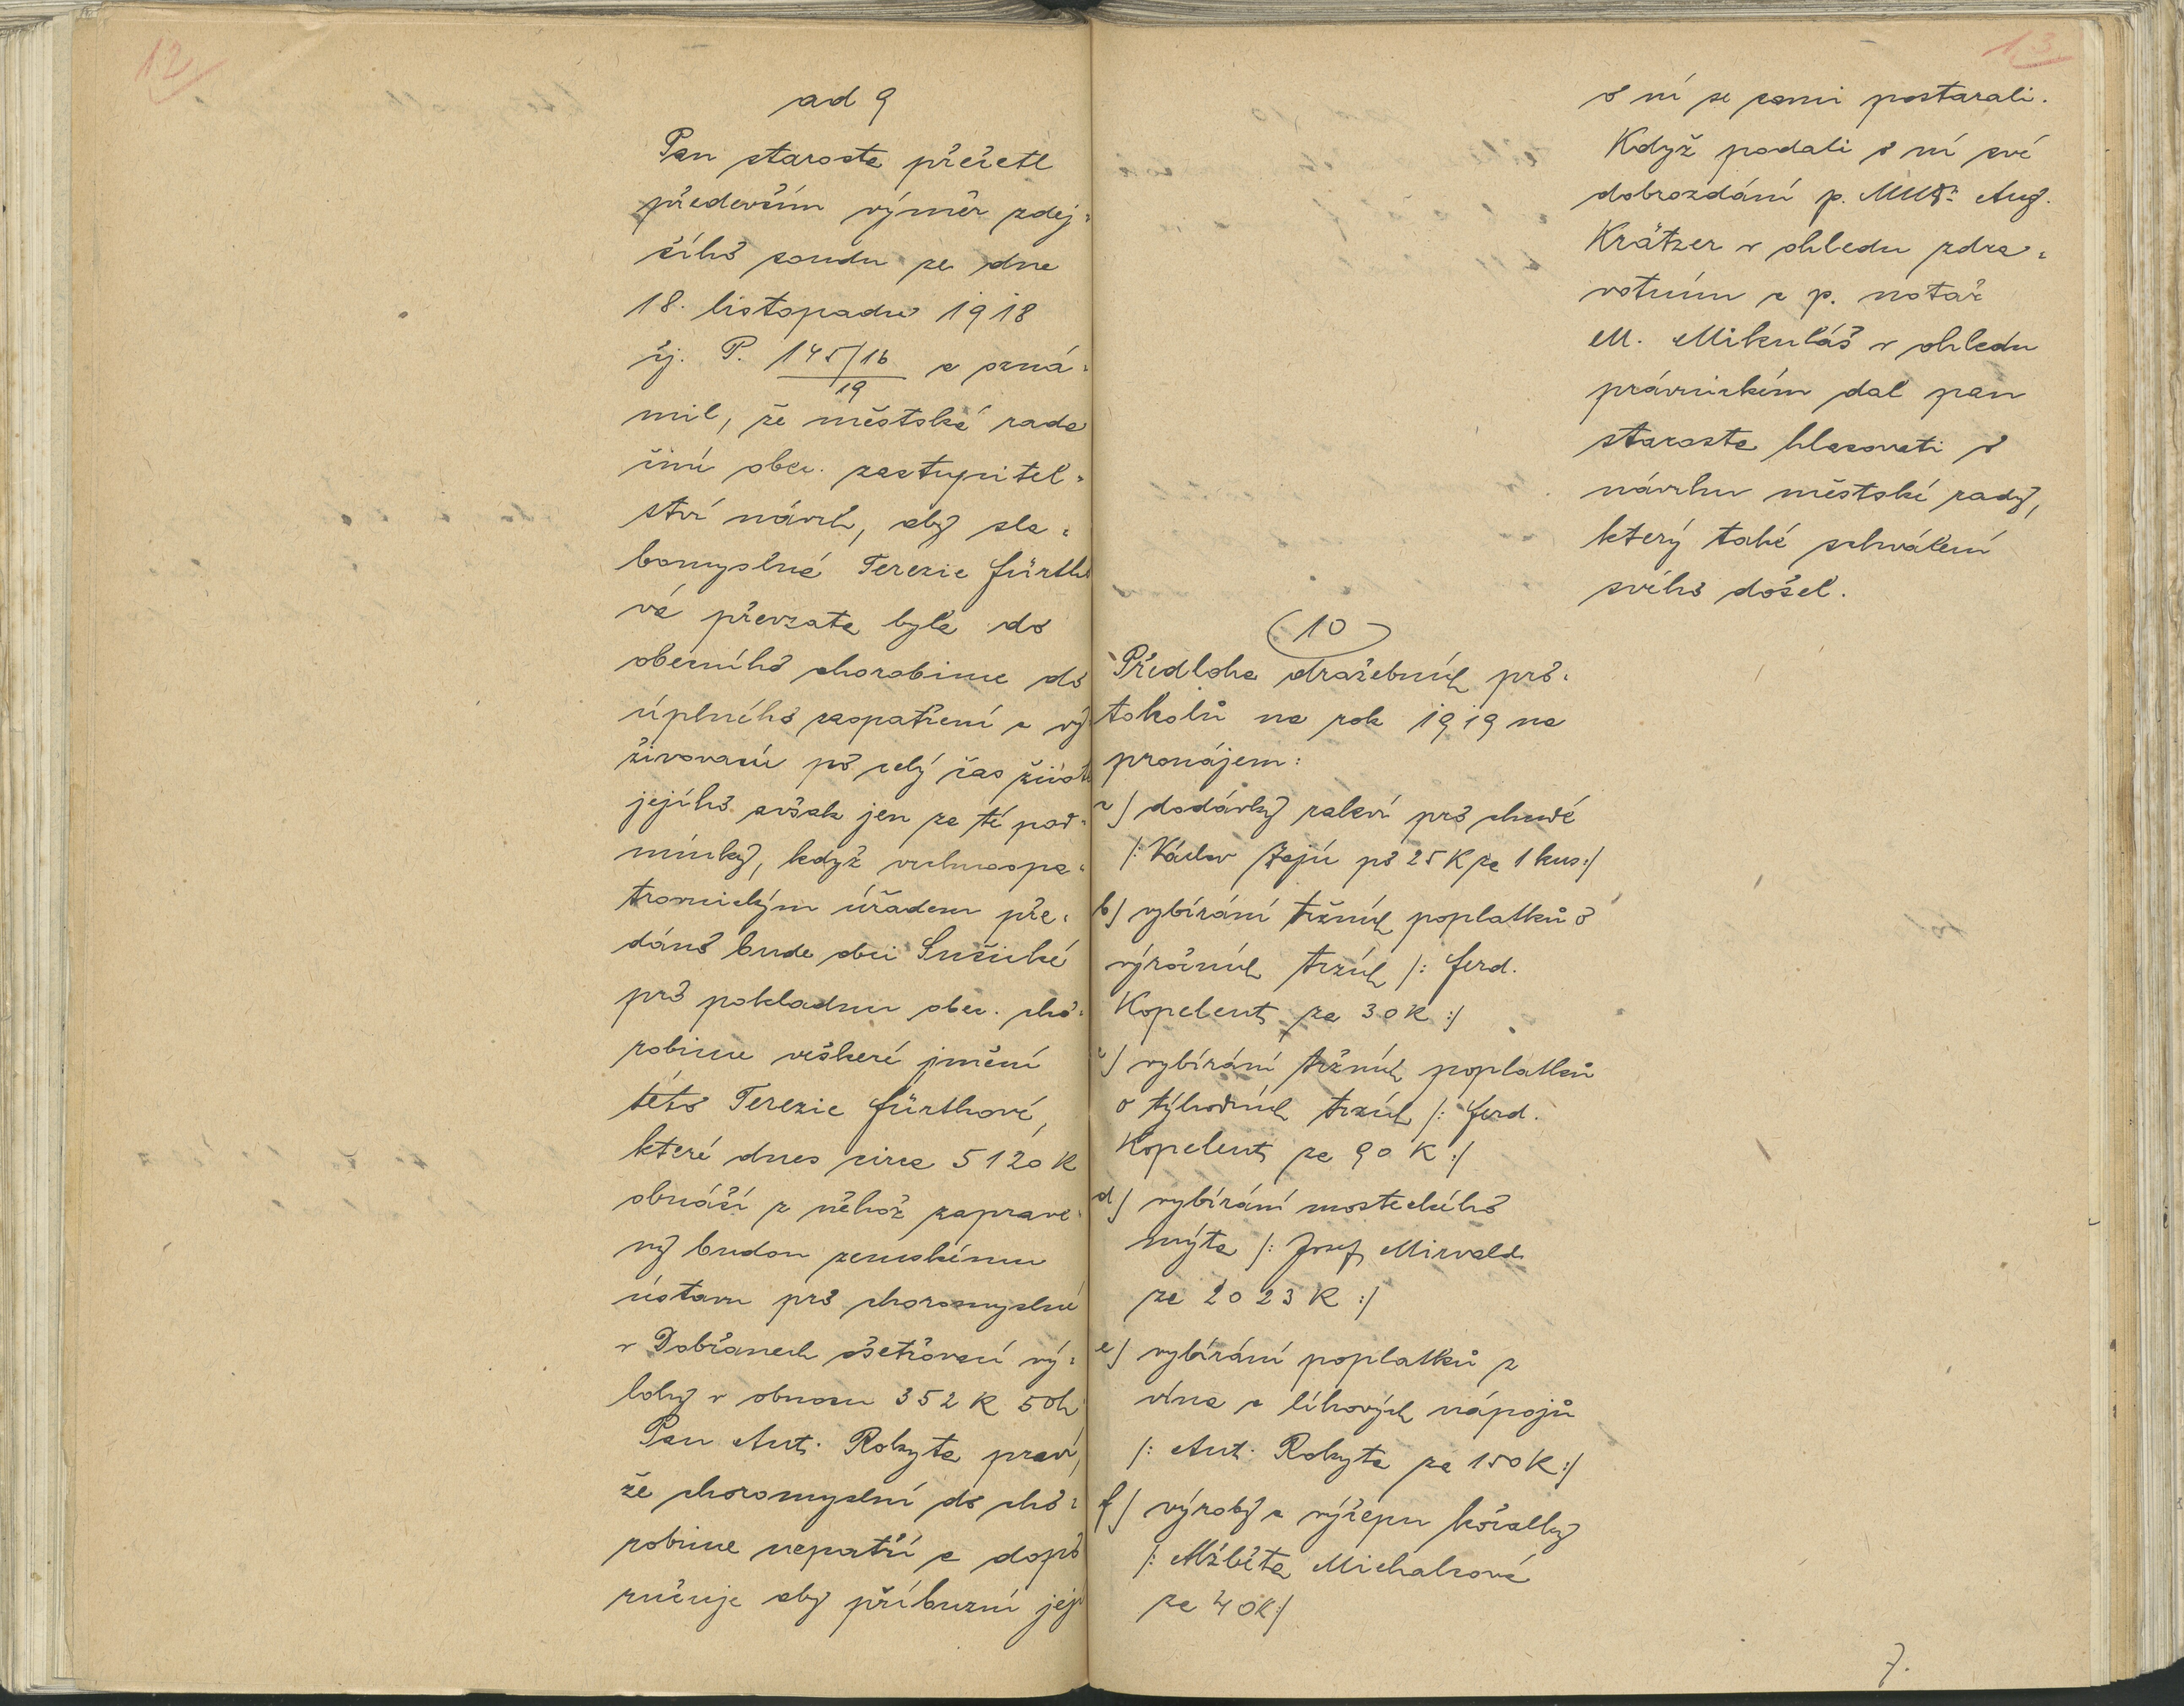 12
ad 9
Pan starosta přečetl
především výměr zdej=
šího soudu ze dne
18. listopadu 1918
čj. P. 145/16 a ozná=
19
mil, že městská rada
činí obec. zastupitel=
ství návrh, aby sla=
bomyslná Terezie Fürtho
vá převzata byla do
obecního chorobince do
úplného zaopatření a vý
živování po celý čas života
jejího avšak jen za té pod=
mínky, když vrchnospo=
tronickým úřadem pře=
dáno bude obci Sušické
pro pokladnu obec. cho=
robince veškeré jmění
této Terezie Fürthové,
které dnes circa 5120 K
obnáší z něhož zaprave=
ny budou zemskému
ústavu pro choromyslné
v Dobřanech ošetřovací vý=
lohy v obnosu 352 K 50h
Pan Ant. Rokyta praví,
že choromyslní do cho=
robince nepatří a dopo
ručuje aby příbuzní její
13
o ní se sami postarali.
Když podali o ní své
dobrozdání p. MUDr. Aug.
Krätzer v ohledu zdra=
votním a p. notář
M. Mikuláš v ohledu
právnickém dal pan
starosta hlasovati o
návrhu městské rady,
který také schválení
svého došel.
10
Předloha dražebních pro=
tokolů na rok 1919 na
pronájem:
a) dodávky rakví pro chudé
/: Václav Zejú po 25 K za 1 kus:/
b) vybírání tržních poplatků o
výročních trzích /: Ferd.
Kopelent za 30 K :/
c) vybírání tržních poplatků
o týhodních trzích /: Ferd.
Kopelent za 90 K :/
d) vybírání mosteckého
mýta /: Josef Mirvald
za 2023 K :/
e) vybírání poplatků z
vína a líhových nápojů
/: Ant. Rokyta za 150 K:/
f) výroby a výčepu kořalky
/: Alžběta Michalcová
za 40K:/
7.